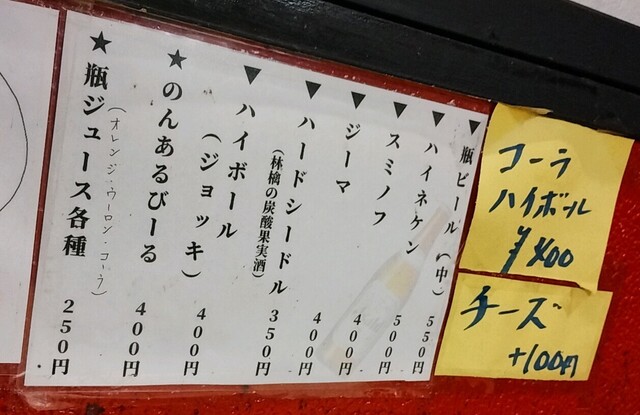 コーラ
ハイボール
¥400
チーズ
+100円
▼瓶ビール(中) 550円
▼ハイネケン 500円
▼スミノフ 400円
▼ジーマ 400円
▼ハードシードル 350円
(林檎の炭酸果実酒)
▼ハイボール
(ジョッキ) 400円
★のんあるびーる 400円
(オレンジ・ウーロン・コーラ)
★瓶ジュース各種 250円